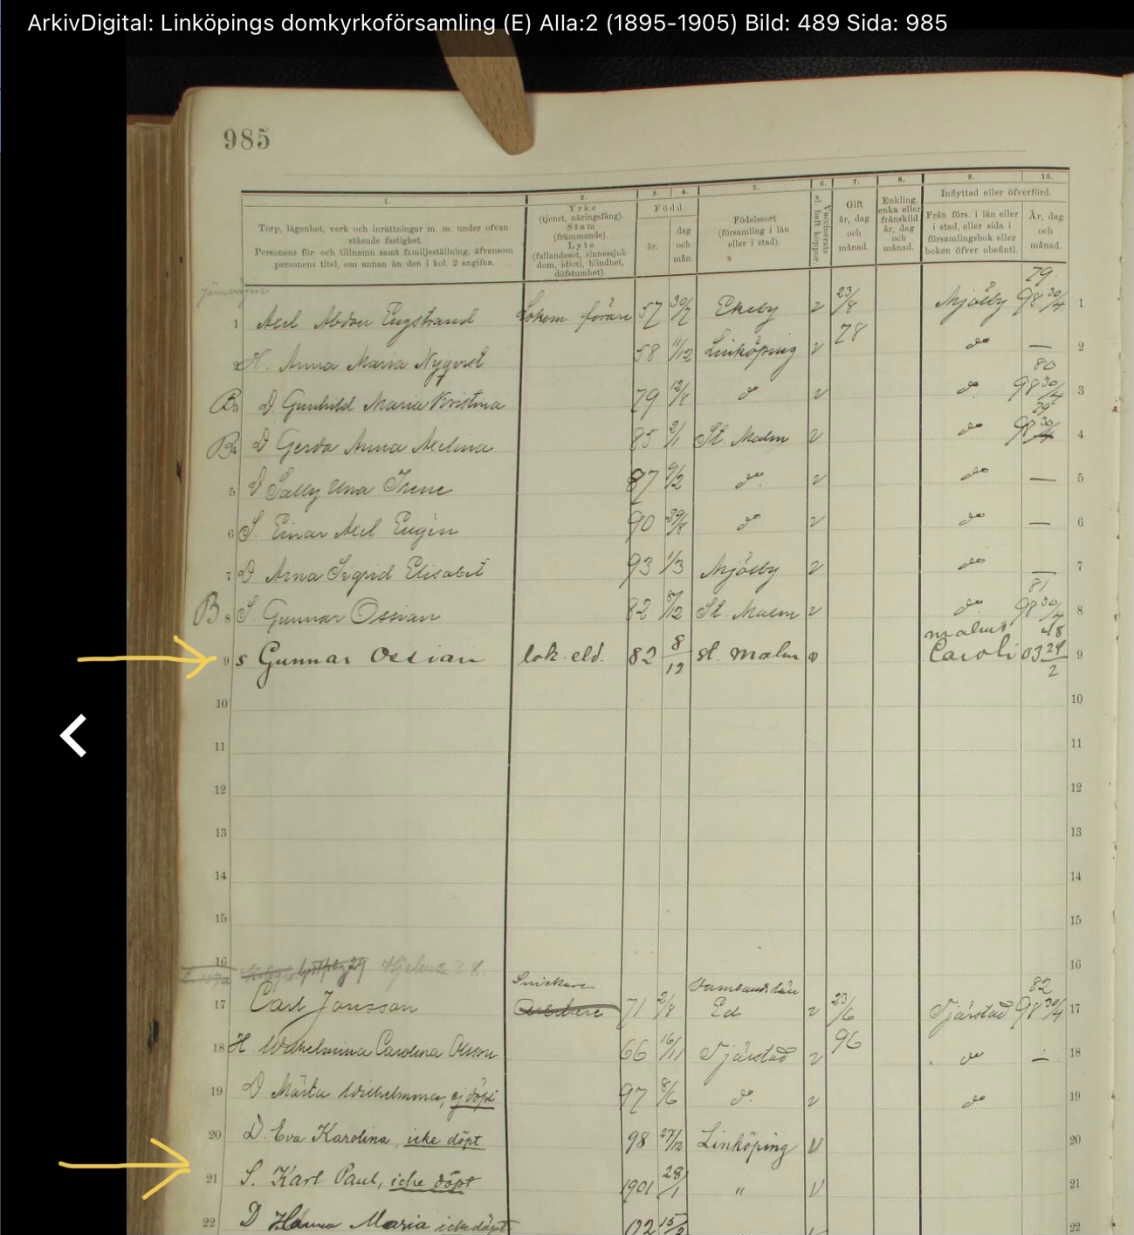 ArkivDigital: Linköpings domkyrkoförsamling (E) Alla:2 (1895-1905) Bild: 489 Sida: 985
985
1. 2. 3. 4. 5. 6. 7. 8. 9. 10.
Torp, lägenhet, verk och inrättningar m. m. under ofvan stående fastighet.
Personens för- och tillnamn samt familjeställning, äfvensom personens titel, om annan än den i kol. 2 angifna.
Yrke (tjenst, näringsfång). Stam (främmande). Lyte (fallandesot, sinnessjukdom, idioti, blindhet, döfstumhet).
Född
år.
dag och mån.
Födelseort (församling i län eller i stad).
Gift år, dag och månad.
Enkling, enka eller frånskild år, dag och månad.
Inflyttad eller öfverförd.
Från förs. i län eller i stad, eller sida i församlingsbok eller boken öfver obefintl.
År, dag och månad.
79
1 Axel Engstrand Lokom förare 57 30/7 Ekeby v 23/8 78 Mjölby 98 30/4 1
2 H. Anna Maria Nyqvist 58 11/12 Linköping v do — 2
80
3 D Gunhild Maria Kristina 79 12/8 do v do 98 30/4 3
4 D Gerda Anna 85 2/1 St. Malm v do 98 30/4 4
5 D Sally Una Irene 87 9/2 do v do — 5
6 S. Einar Axel Eugén 90 29/8 do v do — 6
7 D Anna Sigrid Elisabet 93 1/3 Mjölby v do — 7
81
B 8 S. Gunnar Ossian 82 8/12 St. Malm v do 98 30/4 8
9 s Gunnar Ossian lok. eld. 82 8/12 st. malm malmö Caroli 48 03 24/2 9
10 10
11 11
12 12
13 13
14 14
15 15
16 16
82
Snickare
17 Carl Jonsson Arbetare 71 2/8 Ed v 23/6 96 Tjärstad 98 30/4 17
18 H Wilhelmina Carolina Olsson 66 16/11 Tjärstad v do — 18
19 D Märta Wilhelmina, ej döpt 97 8/6 do v do 19
20 D. Eva Karolina, icke döpt 98 27/12 Linköping v 20
21 S. Karl Paul, icke döpt 1901 28/1 " v 21
22 D Hanna Maria icke döpt 02 15/2 22